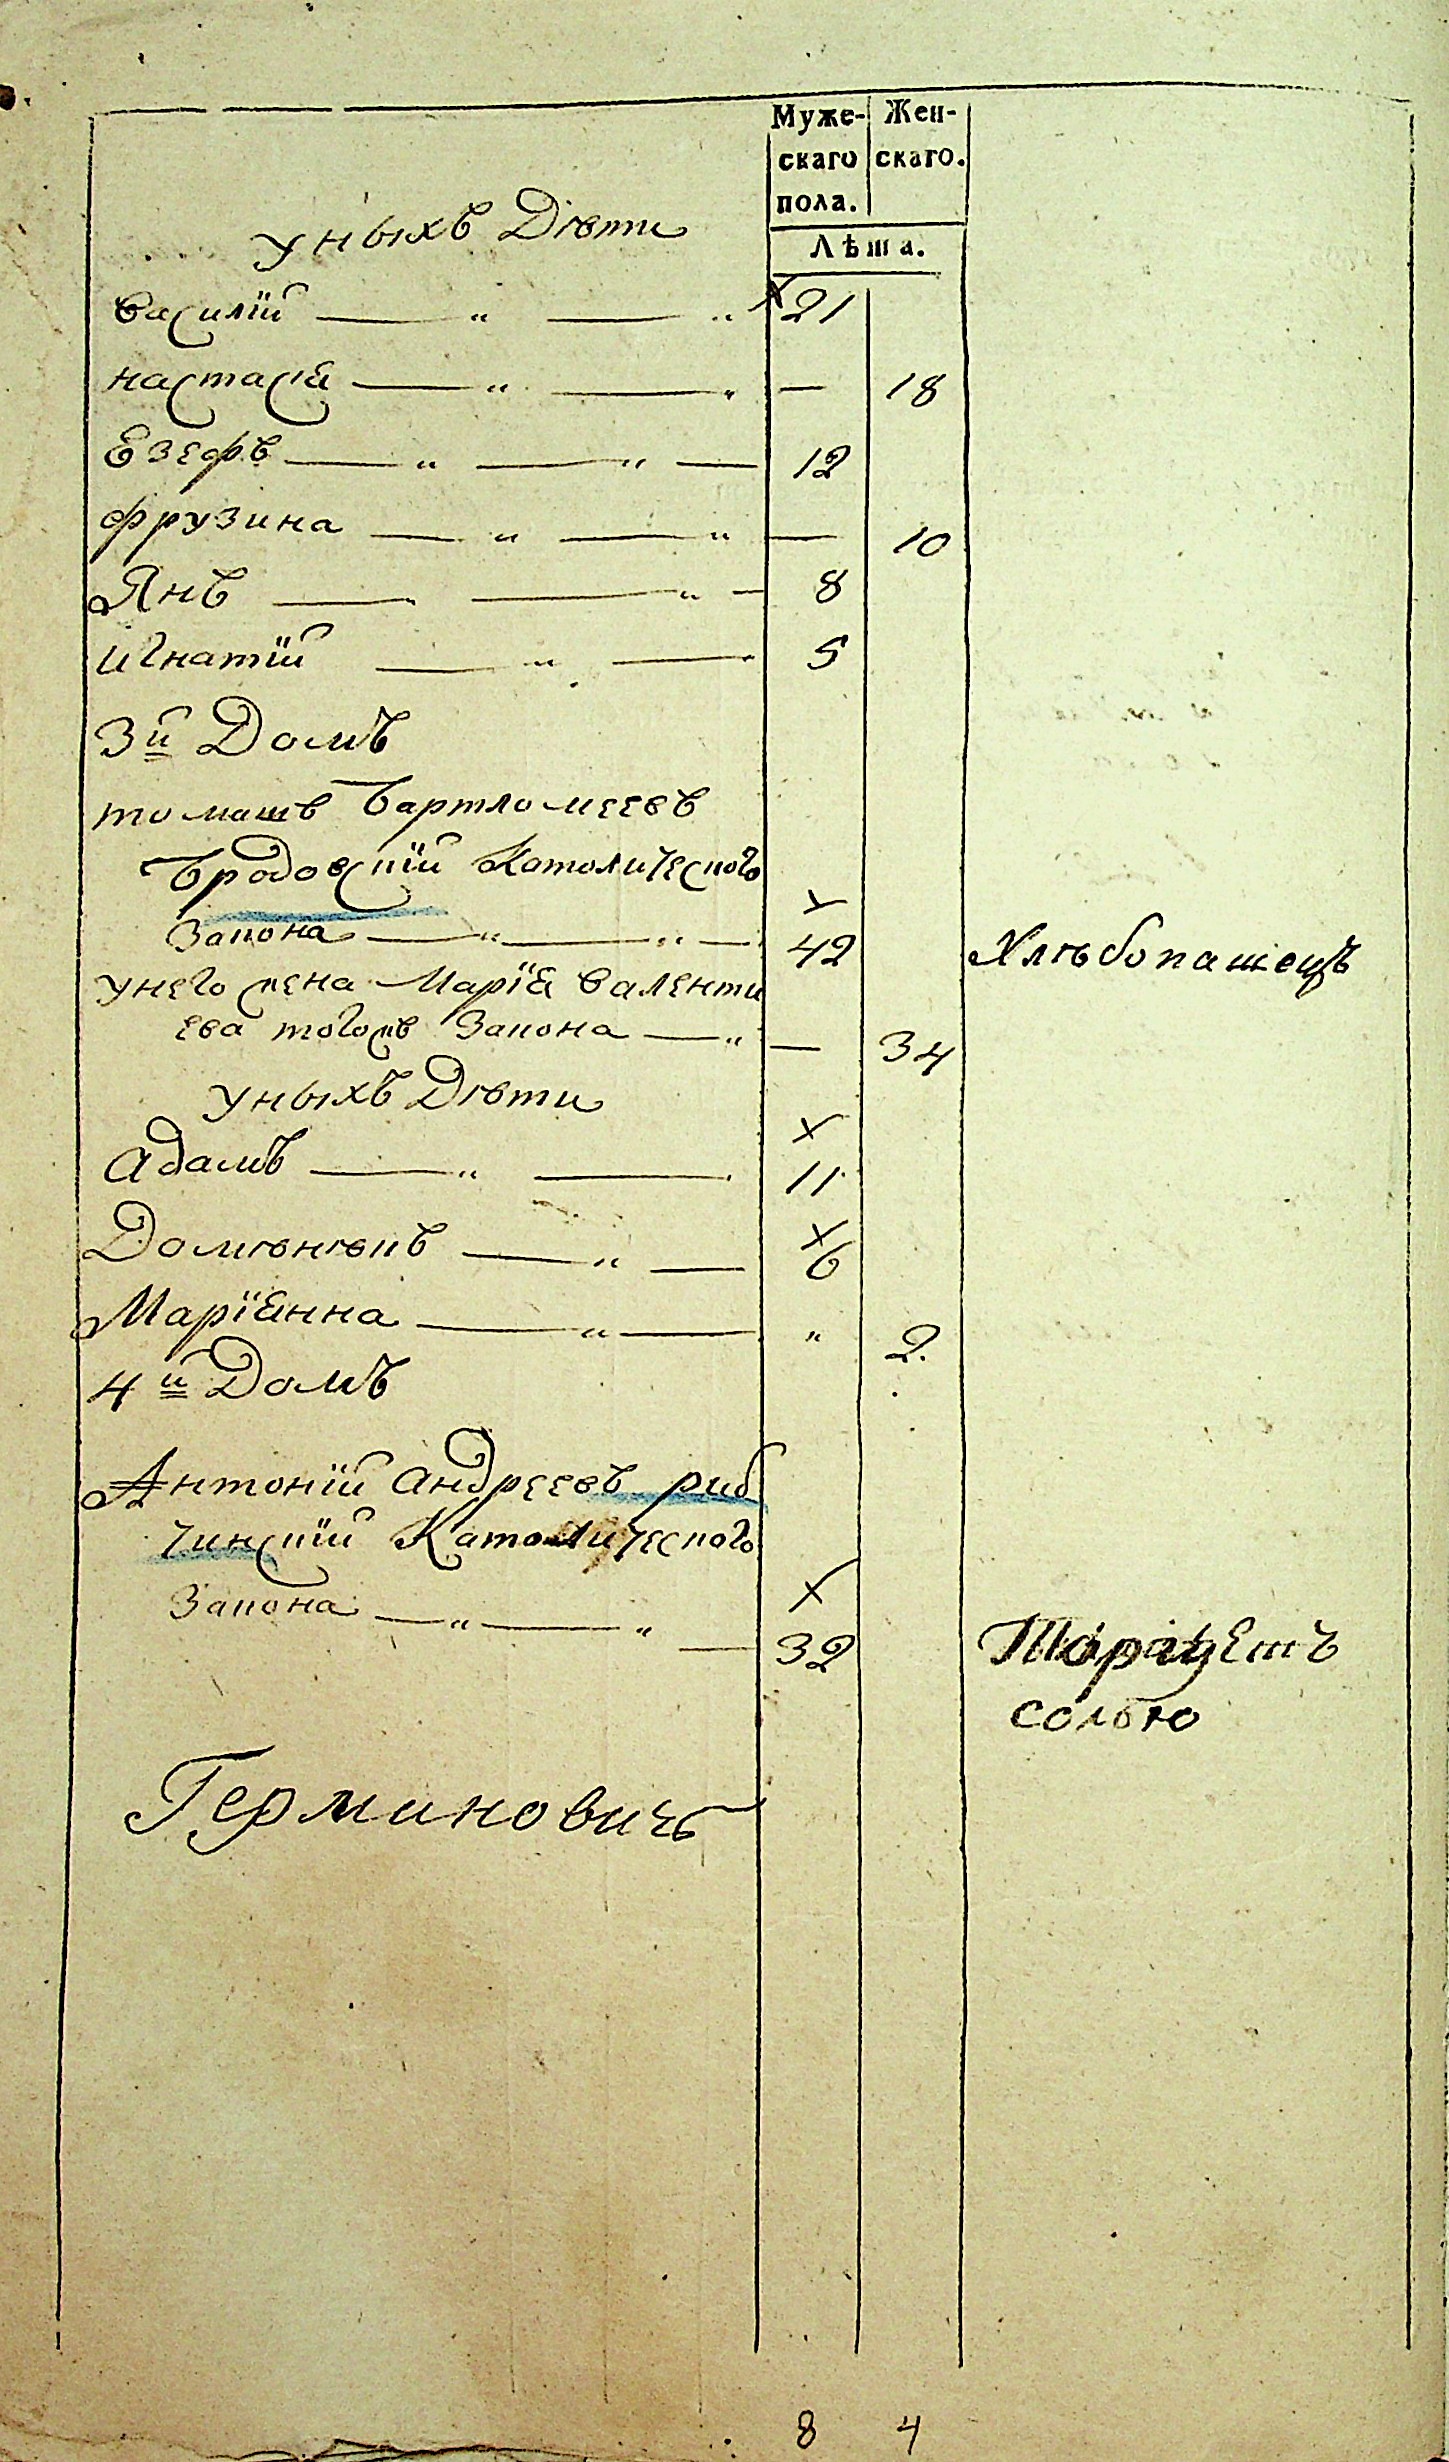 Муже- Жен-
скаго скаго.
пола.
Лѣта.
уныхъ Дѣти
василій — „ — „ 21
настасія — „ — „ — 18
Езефъ — „ — „ — 12
фрузина — „ — „ — 10
Янъ — — „ — 8
игнатій — „ — 5
3й Домъ
томашъ Бартломеевъ
Бродовскій Католического
Закона — „ — „ — 42 Хлѣбопашецъ
унего жена Марія валенти
ева тогожъ Закона — „ — 34
уныхъ Дѣти
адамъ — „ — 11
Домѣнѣкъ — „ — 6
Маріянна — „ — „ 2.
4й Домъ
Антоній андреевъ риб
чинскій Католического
Закона — „ — „ — 32 Торгуетъ
солью
Герминовичъ
8 4